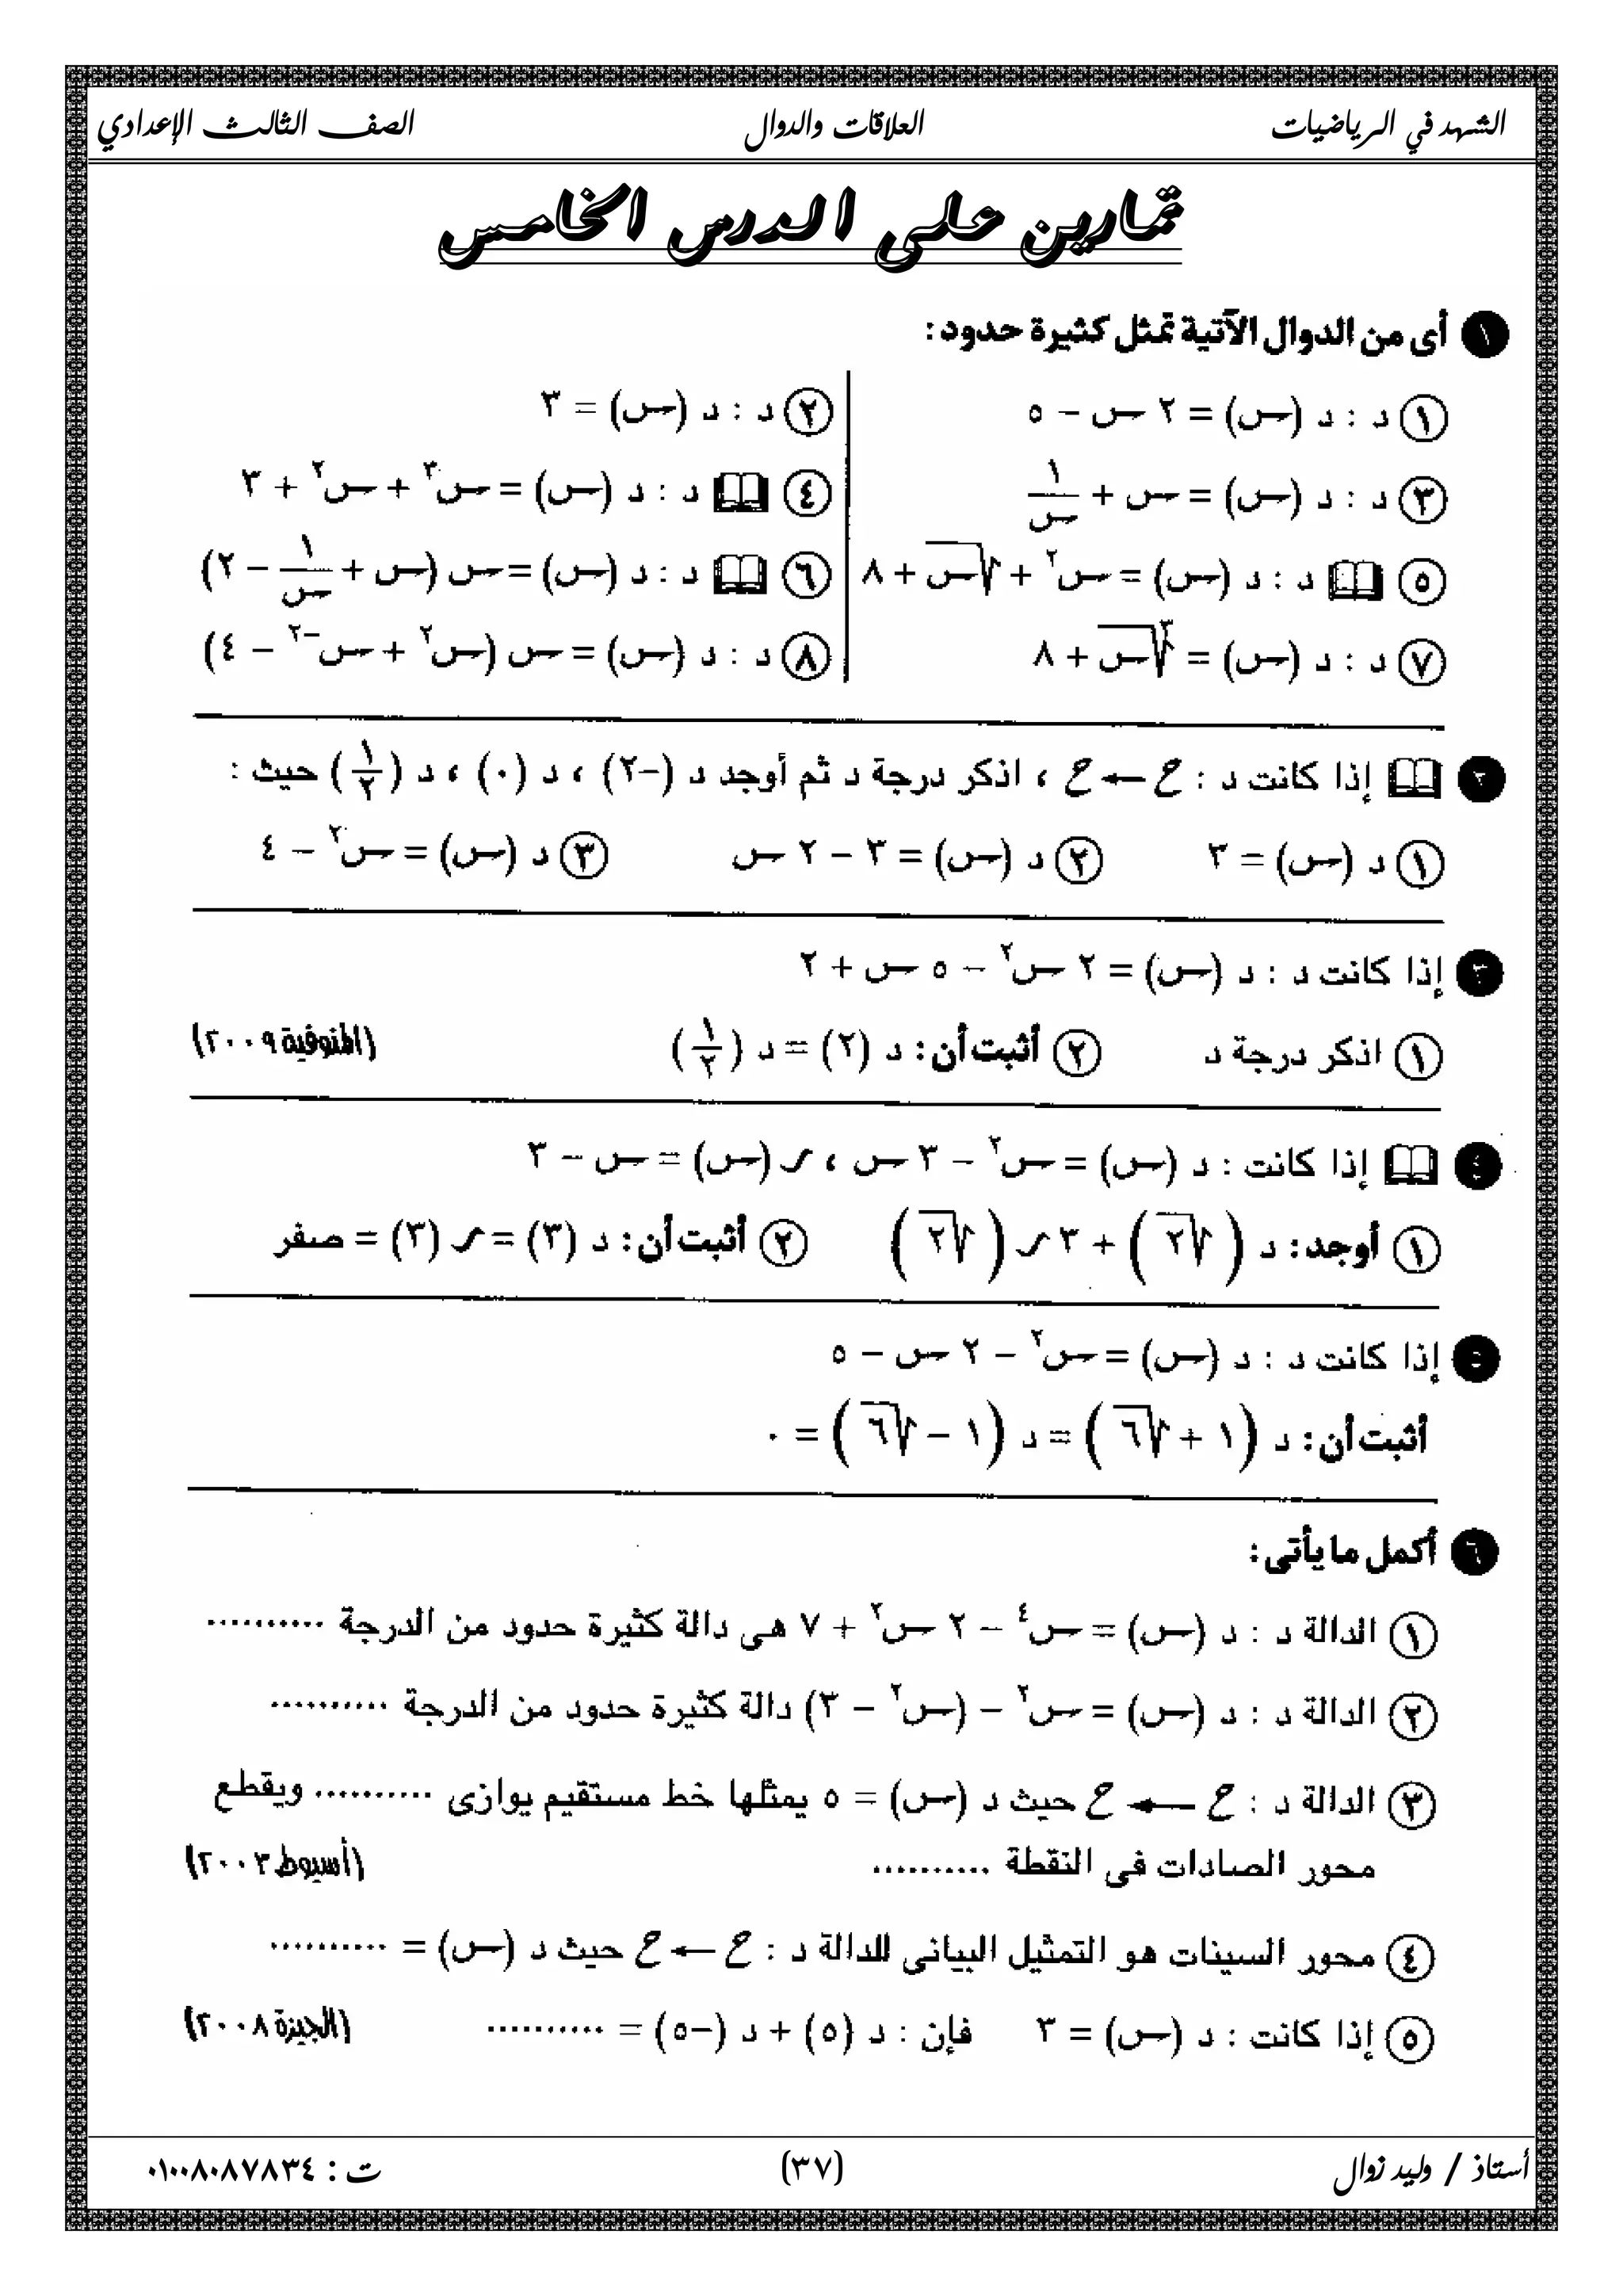 الشهد في الرياضيات العلاقات والدوال الصف الثالث الإعدادي
تمارين على الدرس الخامس
١ أى من الدوال الآتية تمثل كثيرة حدود :
١ د : د (س) = ٢ س − ٥ ٢ د : د (س) = ٣
٣ د : د (س) = س + ١/س ٤ د : د (س) = س٣ + س٢ + ٣
٥ د : د (س) = س٢ + √س + ٨ ٦ د : د (س) = س (س + ١/س − ٢)
٧ د : د (س) = ٣√س + ٨ ٨ د : د (س) = س (س٢ + س−٢ − ٤)
٢ إذا كانت د : ح ← ح ، اذكر درجة د ثم أوجد د (−٢) ، د (٠) ، د (١/٢) حيث :
١ د (س) = ٣ ٢ د (س) = ٣ − ٢ س ٣ د (س) = س٢ − ٤
٣ إذا كانت د : د (س) = ٢ س٢ − ٥ س + ٢
١ اذكر درجة د ٢ أثبت أن : د (٢) = د (١/٢) (المنوفية ٢٠٠٩)
٤ إذا كانت : د (س) = س٢ − ٣ س ، ر (س) = س − ٣
١ أوجد : د (√٢) + ٣ ر (√٢) ٢ أثبت أن : د (٣) = ر (٣) = صفر
٥ إذا كانت د : د (س) = س٢ − ٢ س − ٥
أثبت أن : د (١ + √٦) = د (١ − √٦) = ٠
٦ أكمل ما يأتى :
١ الدالة د : د (س) = س٤ − ٢ س٢ + ٧ هى دالة كثيرة حدود من الدرجة ..........
٢ الدالة د : د (س) = س٢ − (س٢ − ٣) دالة كثيرة حدود من الدرجة ..........
٣ الدالة د : ح ← ح حيث د (س) = ٥ يمثلها خط مستقيم يوازى .......... ويقطع
محور الصادات فى النقطة .......... (أسيوط ٢٠٠٣)
٤ محور السينات هو التمثيل البيانى للدالة د : ح ← ح حيث د (س) = ..........
٥ إذا كانت : د (س) = ٣ فإن : د (٥) + د (−٥) = .......... (الجيزة ٢٠٠٨)
أستاذ / وليد زوال (٣٧) ت : ٠١٠٠٨٠٨٧٨٣٤